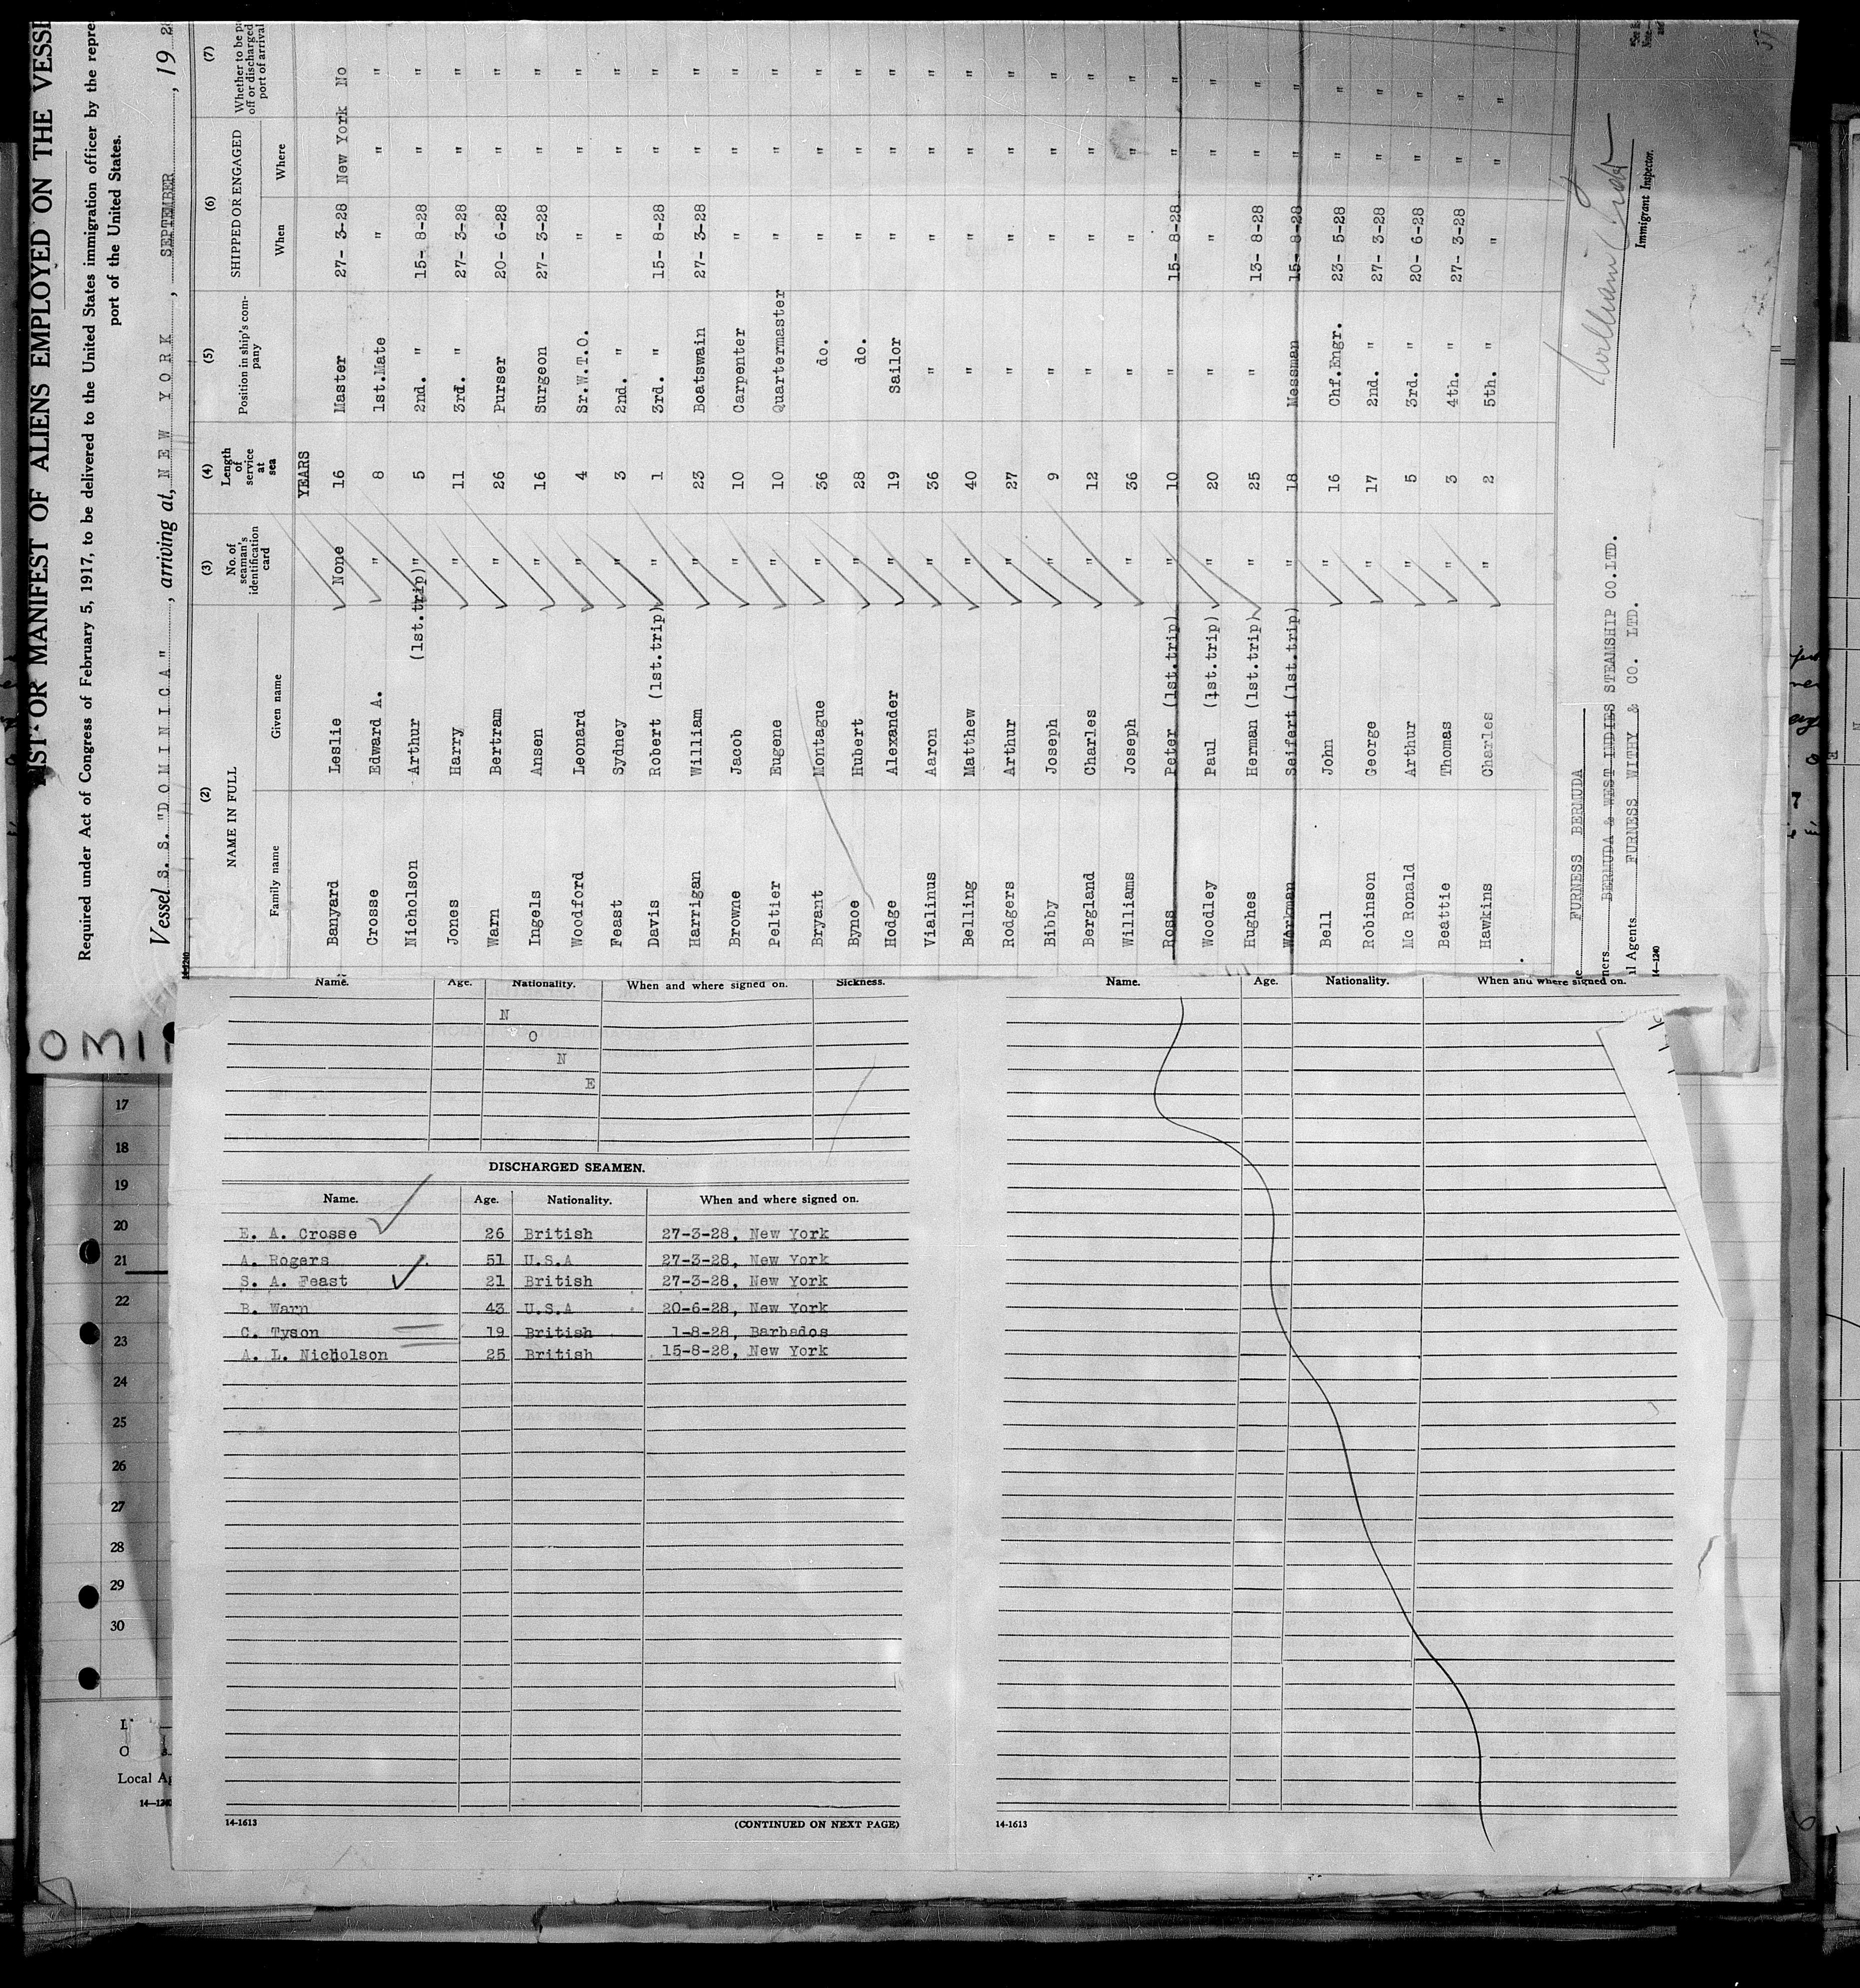 LIST OR MANIFEST OF ALIENS EMPLOYED ON THE VESSE
Required under Act of Congress of February 5, 1917, to be delivered to the United States immigration officer by the repre
port of the United States.
Vessel S. S. "DOMINICA" , arriving at, NEW YORK , SEPTEMBER , 19 28
(2) (3) (4) (5) (6) (7)
NAME IN FULL No. of seaman's identification card Length of service at sea Position in ship's company SHIPPED OR ENGAGED Whether to be p off or discharged port of arrival
Family name Given name When Where
YEARS
Banyard Leslie None 16 Master 27- 3-28 New York No
Crosse Edward A. " 8 1st.Mate " " "
Nicholson Arthur (1st.trip) " 5 2nd. " 15- 8-28 " "
Jones Harry " 11 3rd. " 27- 3-28 " "
Warn Bertram " 26 Purser 20- 6-28 " "
Ingels Ansen " 16 Surgeon 27- 3-28 " "
Woodford Leonard " 4 Sr.W.T.O. " " "
Feast Sydney " 3 2nd. " " " "
Davis Robert (1st.trip) " 1 3rd. " 15- 8-28 " "
Harrigan William " 23 Boatswain 27- 3-28 " "
Browne Jacob " 10 Carpenter " " "
Peltier Eugene " 10 Quartermaster " " "
Bryant Montague " 36 do. " " "
Bynoe Hubert " 28 do. " " "
Hodge Alexander " 19 Sailor " " "
Vialinus Aaron " 36 " " " "
Belling Matthew " 40 " " " "
Rodgers Arthur " 27 " " " "
Bibby Joseph " 9 " " " "
Bergland Charles " 12 " " " "
Williams Joseph " 36 " " " "
Ross Peter (1st.trip) " 10 " 15- 8-28 " "
Woodley Paul (1st.trip) " 20 " " " "
Hughes Herman (1st.trip) " 25 " 13- 8-28 " "
Workman Seifert (1st.trip) " 18 Messman 15- 8-28 " "
Bell John " 16 Chf.Engr. 23- 5-28 " "
Robinson George " 17 2nd. " 27- 3-28 " "
Mc Ronald Arthur " 5 3rd. " 20- 6-28 " "
Beattie Thomas " 3 4th. " 27- 3-28 " "
Hawkins Charles " 2 5th. " " " "
FURNESS BERMUDA
ners BERMUDA & WEST INDIES STEAMSHIP CO.LTD.
l Agents FURNESS WITHY & CO. LTD.
Immigrant Inspector.
14-1240
OMI
Name. Age. Nationality. When and where signed on. Sickness.
N
O
N
E
DISCHARGED SEAMEN.
Name. Age. Nationality. When and where signed on.
E. A. Crosse 26 British 27-3-28, New York
A. Rogers 51 U.S.A 27-3-28, New York
S. A. Feast 21 British 27-3-28, New York
B. Warn 43 U.S.A 20-6-28, New York
C. Tyson 19 British 1-8-28, Barbados
A. L. Nicholson 25 British 15-8-28, New York
14-1613 (CONTINUED ON NEXT PAGE)
Name. Age. Nationality. When and where signed on.
14-1613
17
18
19
20
21
22
23
24
25
26
27
28
29
30
Local Ag